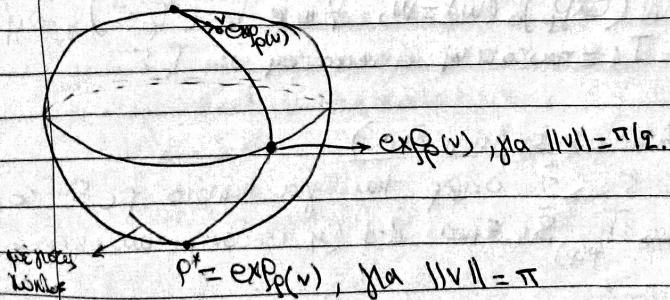 v
exp_p(v)
exp_p(v), για ||v|| = π/2.
μέγιστος
κύκλος
p* = exp_p(v), για ||v|| = π